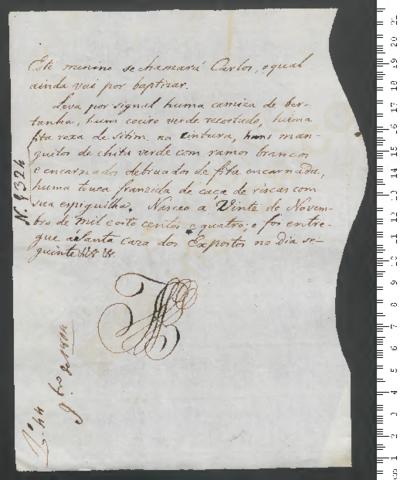 Este menino se chamará Carlos, o qual
ainda vai por baptizar.
Leva por signal huma camiza de ber-
tanha, hum coeiro verde recortado, huma
fita roza de sitim, na cintura, huns man-
guitos de chita verde com ramos brancos
e encarnados debruados de fita encarnada,
huma touca franzida de caça de riscas com
sua espiguilha. Nasceo a Vinte de Novem-
bro de mil eoito centos e quatro; e foi entre-
gue á Santa Caza dos Expostos no dia se-
guinte
N. 1324
9.bro